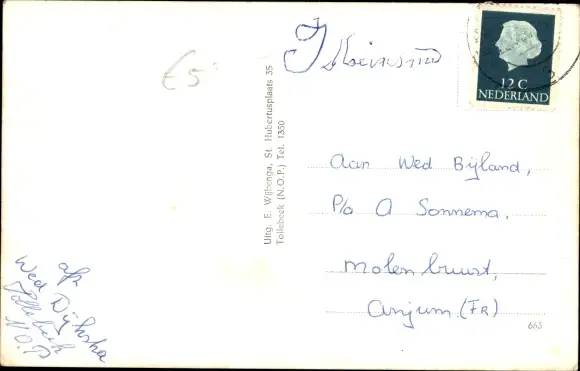 €5
12 C
NEDERLAND
Uitg. E. Wijbenga, St. Hubertusplaats 35
Tollebeek (N.O.P.) Tel. 1350
Aan Wed Bijland,
P/a A Sonnema,
molenbuurt,
Anjum (FR)
663
afz
Wed Dijkstra
Tollebeek
N.O.P